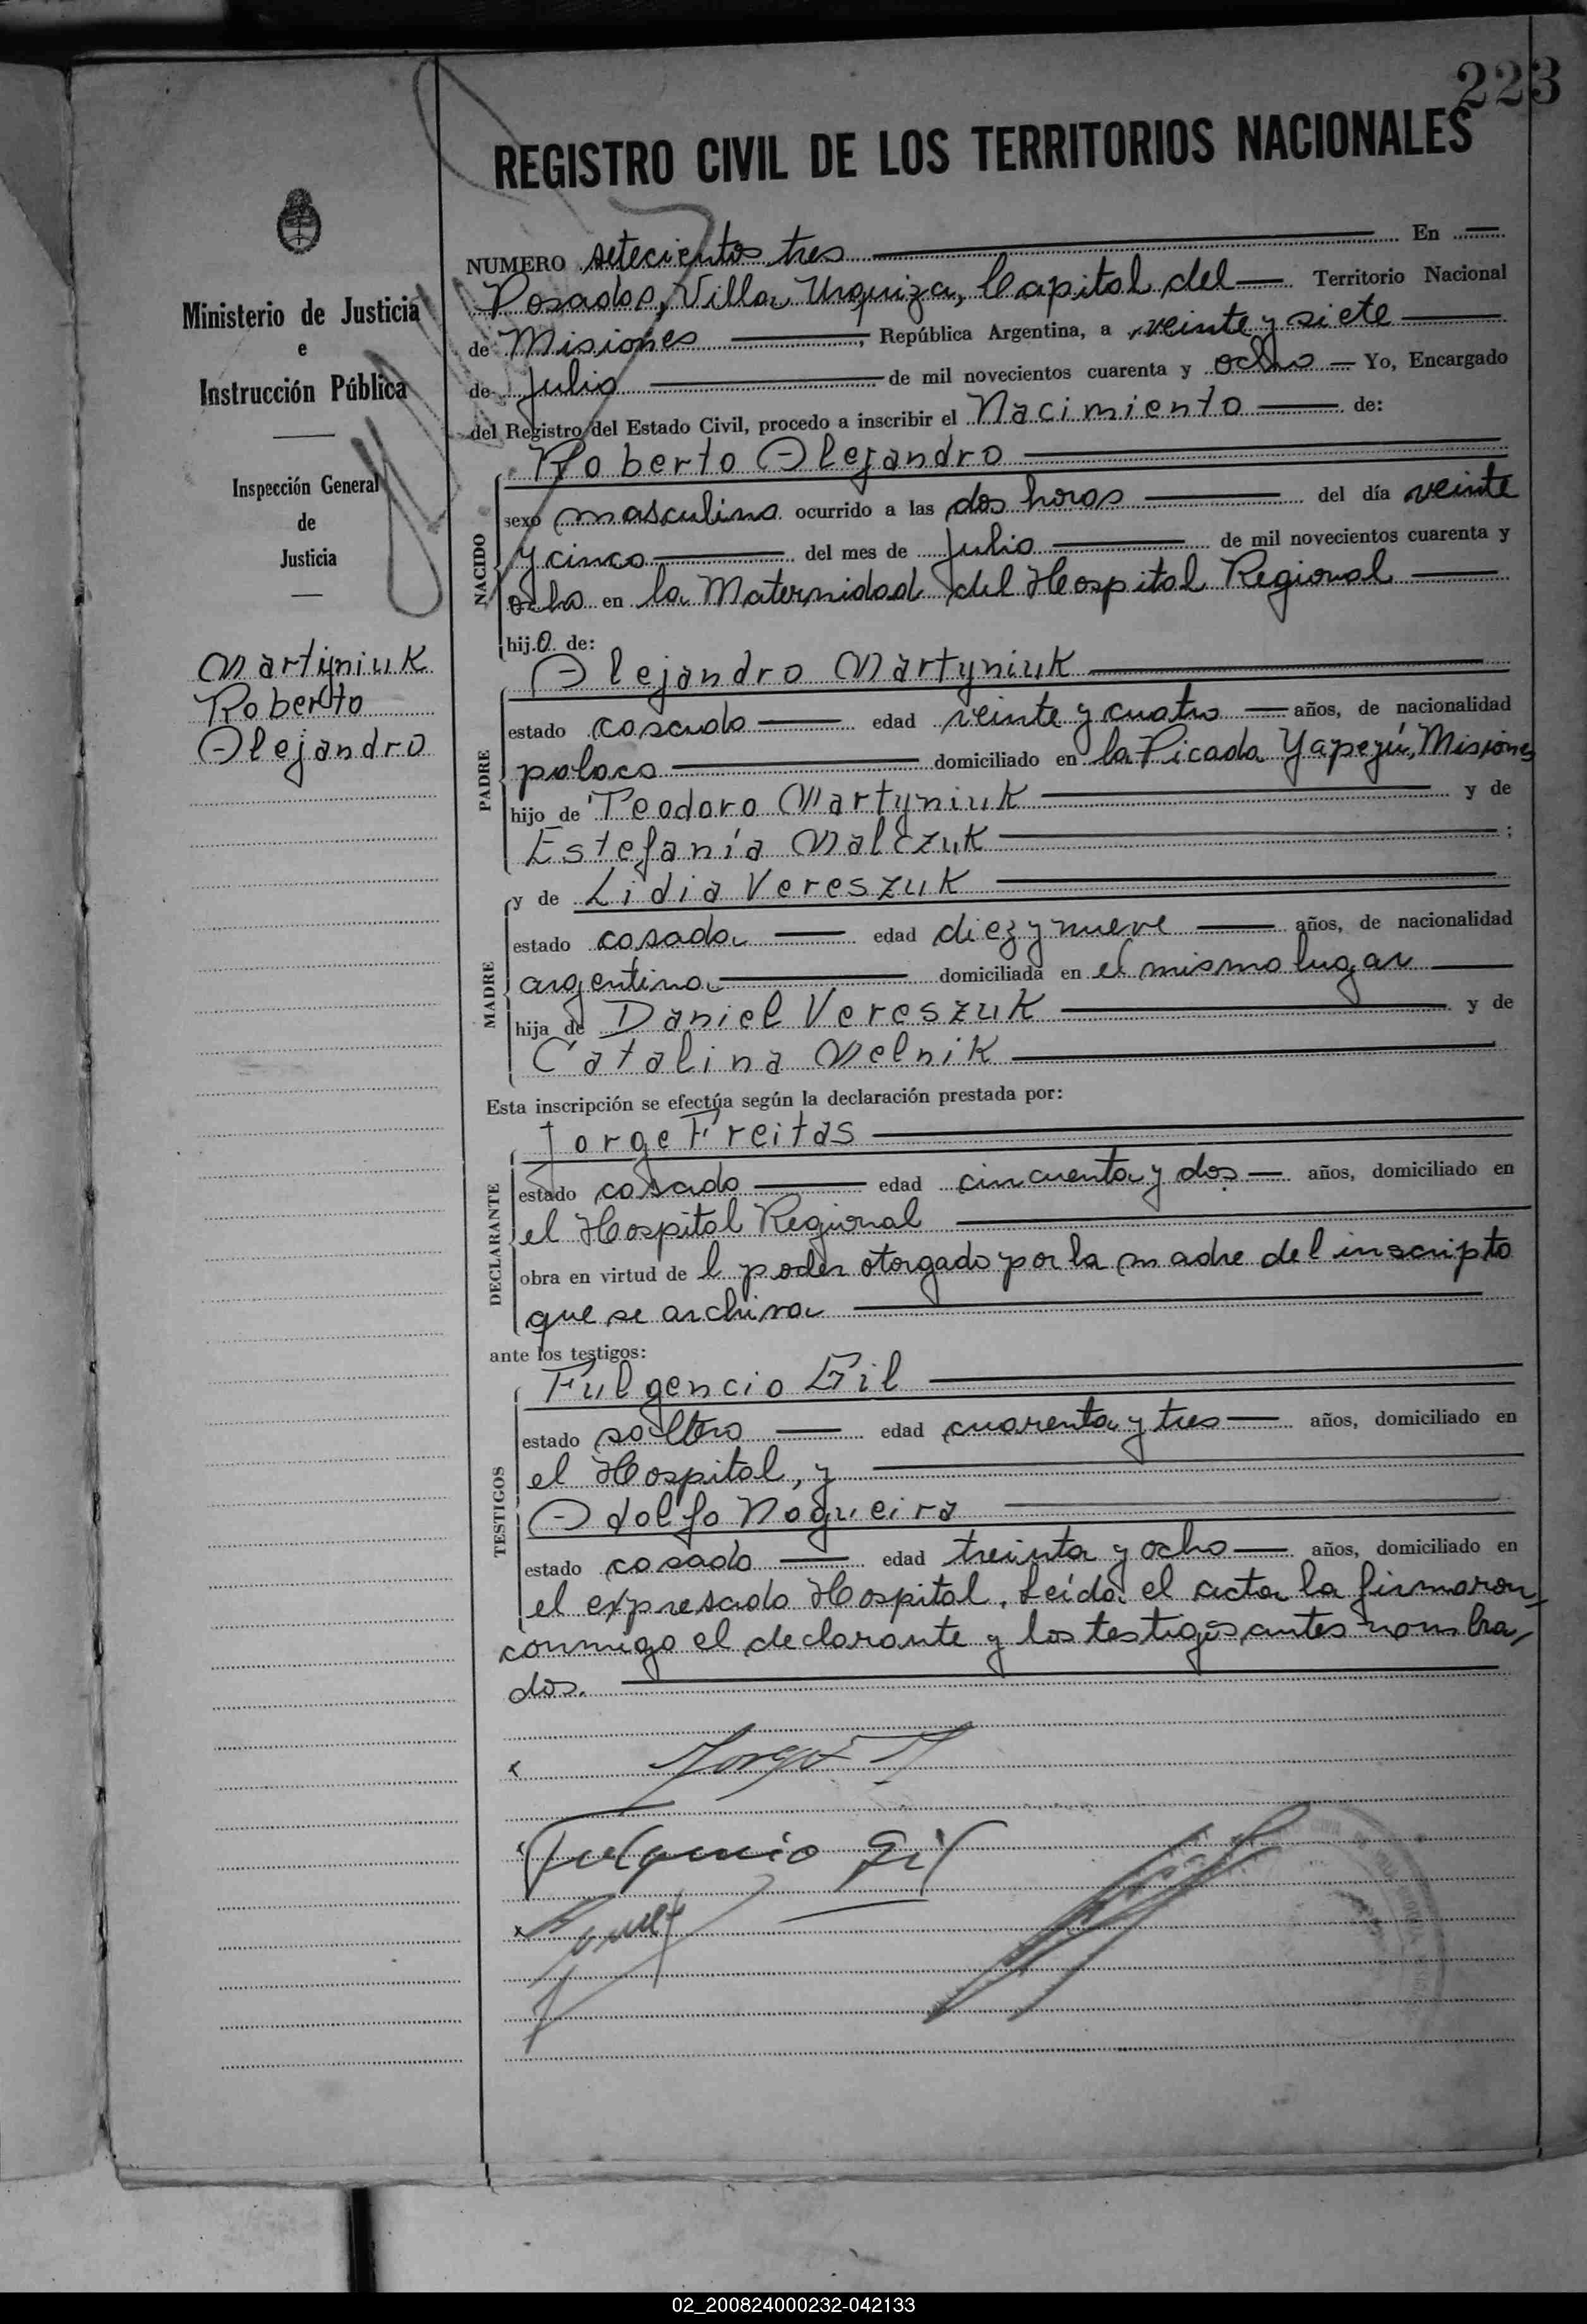 223
REGISTRO CIVIL DE LOS TERRITORIOS NACIONALES
Ministerio de Justicia
e
Instrucción Pública
Inspección General
de
Justicia
Martyniuk
Roberto
Alejandro
NUMERO setecientos tres En
Posadas, Villa Urquiza, Capital del Territorio Nacional
de Misiones, República Argentina, a veinte y siete
de Julio de mil novecientos cuarenta y ocho Yo, Encargado
del Registro del Estado Civil, procedo a inscribir el Nacimiento de:
NACIDO
Roberto Alejandro
sexo masculino ocurrido a las dos horas del día veinte
y cinco del mes de Julio de mil novecientos cuarenta y
ocho en la Maternidad del Hospital Regional
hijo de:
PADRE
Alejandro Martyniuk
estado casado edad veinte y cuatro años, de nacionalidad
polaca domiciliado en la Picada Yapeyú, Misiones
hijo de Teodoro Martyniuk y de
Estefanía Malczuk ;
MADRE
y de Lidia Vereszuk
estado casada edad diez y nueve años, de nacionalidad
argentina domiciliada en el mismo lugar
hija de Daniel Vereszuk y de
Catalina Melnik
Esta inscripción se efectúa según la declaración prestada por:
DECLARANTE
Jorge Freitas
estado casado edad cincuenta y dos años, domiciliado en
el Hospital Regional
obra en virtud de l poder otorgado por la madre del inscripto
que se archiva
ante los testigos:
TESTIGOS
Fulgencio Gil
estado soltero edad cuarenta y tres años, domiciliado en
el Hospital, y
Adolfo Nogueira
estado casado edad treinta y ocho años, domiciliado en
el expresado Hospital. Leída el acta la firmaron
conmigo el declarante y los testigos antes nombra-
dos.
Jorge F
Fulgencio Gil
02_200824000232-042133